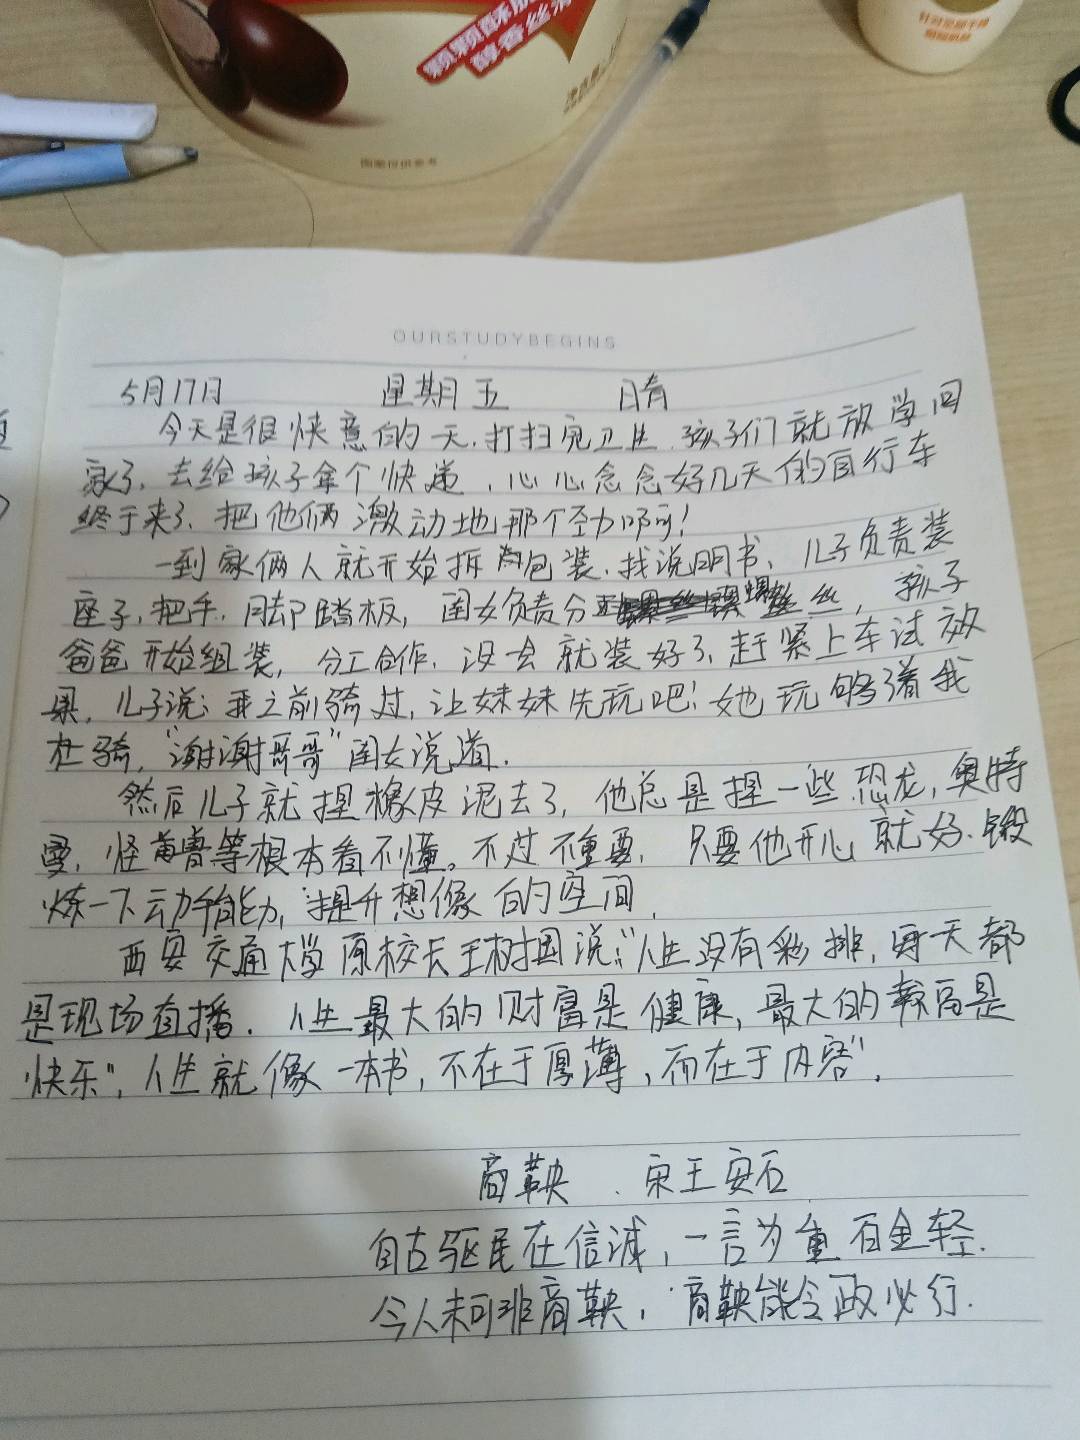 颗颗酥脆
醇香丝滑
图案仅供参考
OURSTUDYBEGINS
5月17日 星期五 晴
今天是很快意的一天.打扫完卫生.孩子们就放学回
家了.去给孩子拿个快递、心心念念好几天的自行车
终于来了、把他俩激动地那个劲啊!
一到家俩人就开始拆包装.找说明书、儿子负责装
座子,把手.脚踏板,闺女负责分螺丝,孩子
爸爸开始组装,分工合作.没会就装好了.赶紧上车试效
果,儿子说:我之前骑过,让妹妹先玩吧!她玩够了着我
在骑,"谢谢哥哥"闺女说道.
然后儿子就捏橡皮泥去了,他总是捏一些恐龙,奥特
曼,怪兽等根本看不懂。不过不重要,只要他开心就好.锻
炼一下动手能力,提升想像的空间.
西安交通大学原校长王树国说:"人生没有彩排,每天都
是现场直播.人生最大的财富是健康,最大的幸福是
快乐",人生就像一本书,不在于厚薄,而在于内容".
商鞅 . 宋王安石
自古驱民在信诚,一言为重百金轻.
今人未可非商鞅,商鞅能令政必行.